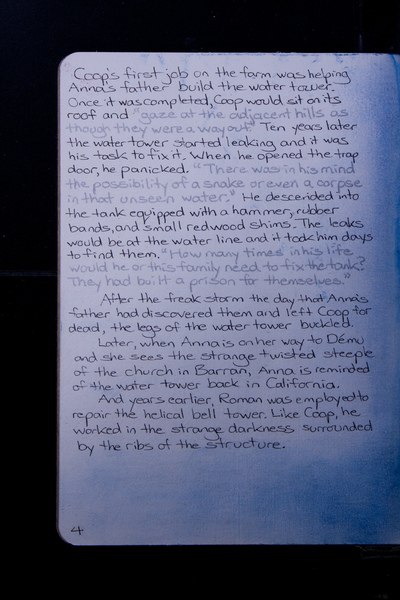 Coop's first job on the farm was helping
Anna's father build the water tower.
Once it was completed, Coop would sit on its
roof and "gaze at the adjacent hills as
though they were a way out." Ten years later
the water tower started leaking and it was
his task to fix it. When he opened the trap
door, he panicked. "There was in his mind
the possibility of a snake or even a corpse
in that unseen water." He descended into
the tank equipped with a hammer, rubber
bands, and small redwood shims. The leaks
would be at the water line and it took him days
to find them. "How many times in his life
would he or this family need to fix the tank?
They had built a prison for themselves."
After the freak storm the day that Anna's
father had discovered them and left Coop for
dead, the legs of the water tower buckled.
Later, when Anna is on her way to Dému
and she sees the strange twisted steeple
of the church in Barran, Anna is reminded
of the water tower back in California.
And years earlier, Roman was employed to
repair the helical bell tower. Like Coop, he
worked in the strange darkness surrounded
by the ribs of the structure.
4